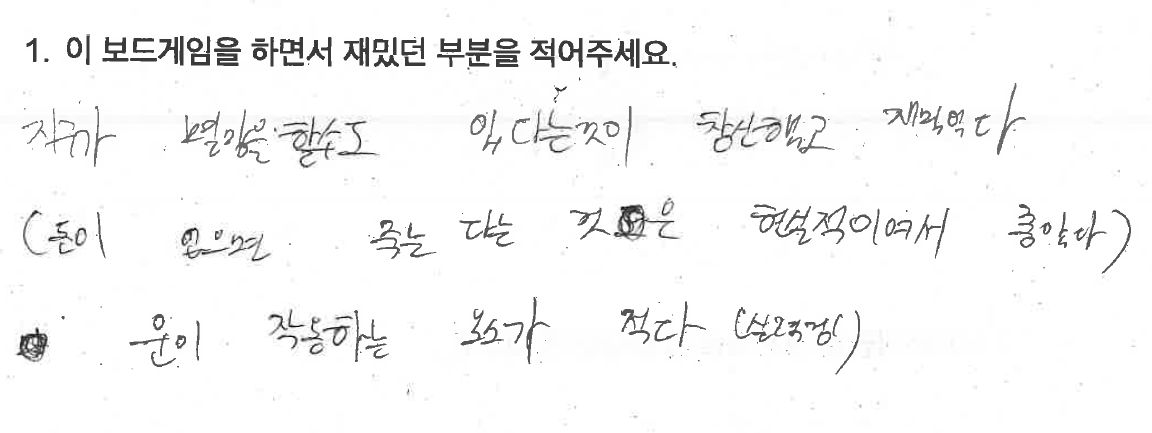 1. 이 보드게임을 하면서 재밌던 부분을 적어주세요.
지구가 멸망을 할수도 있다는것이 참신했고 재밌었다
(돈이 없으면 죽는 다는 것은 현실적이여서 좋았다)
운이 작용하는 요소가 적다 (실력겜)